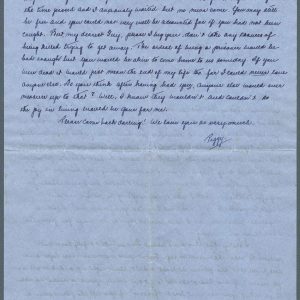 the time passed and I anxiously waited but no news came. You may still
be free and you could not very well be accounted for if you had not been
caught. But my dearest Guy, please I beg you, don't take any chances of
being killed trying to get away. The ordeal of being a prisoner would be
bad enough but you would be able to come home to me someday. If you
were dead it would just mean the end of my life too for I could never love
anyone else. Do you think after having had you, anyone else would ever
measure up to that? Well, I know they wouldn't and couldn't so
the joy in living would be gone for me.
Please come back darling! We love you so very much.
Peggy